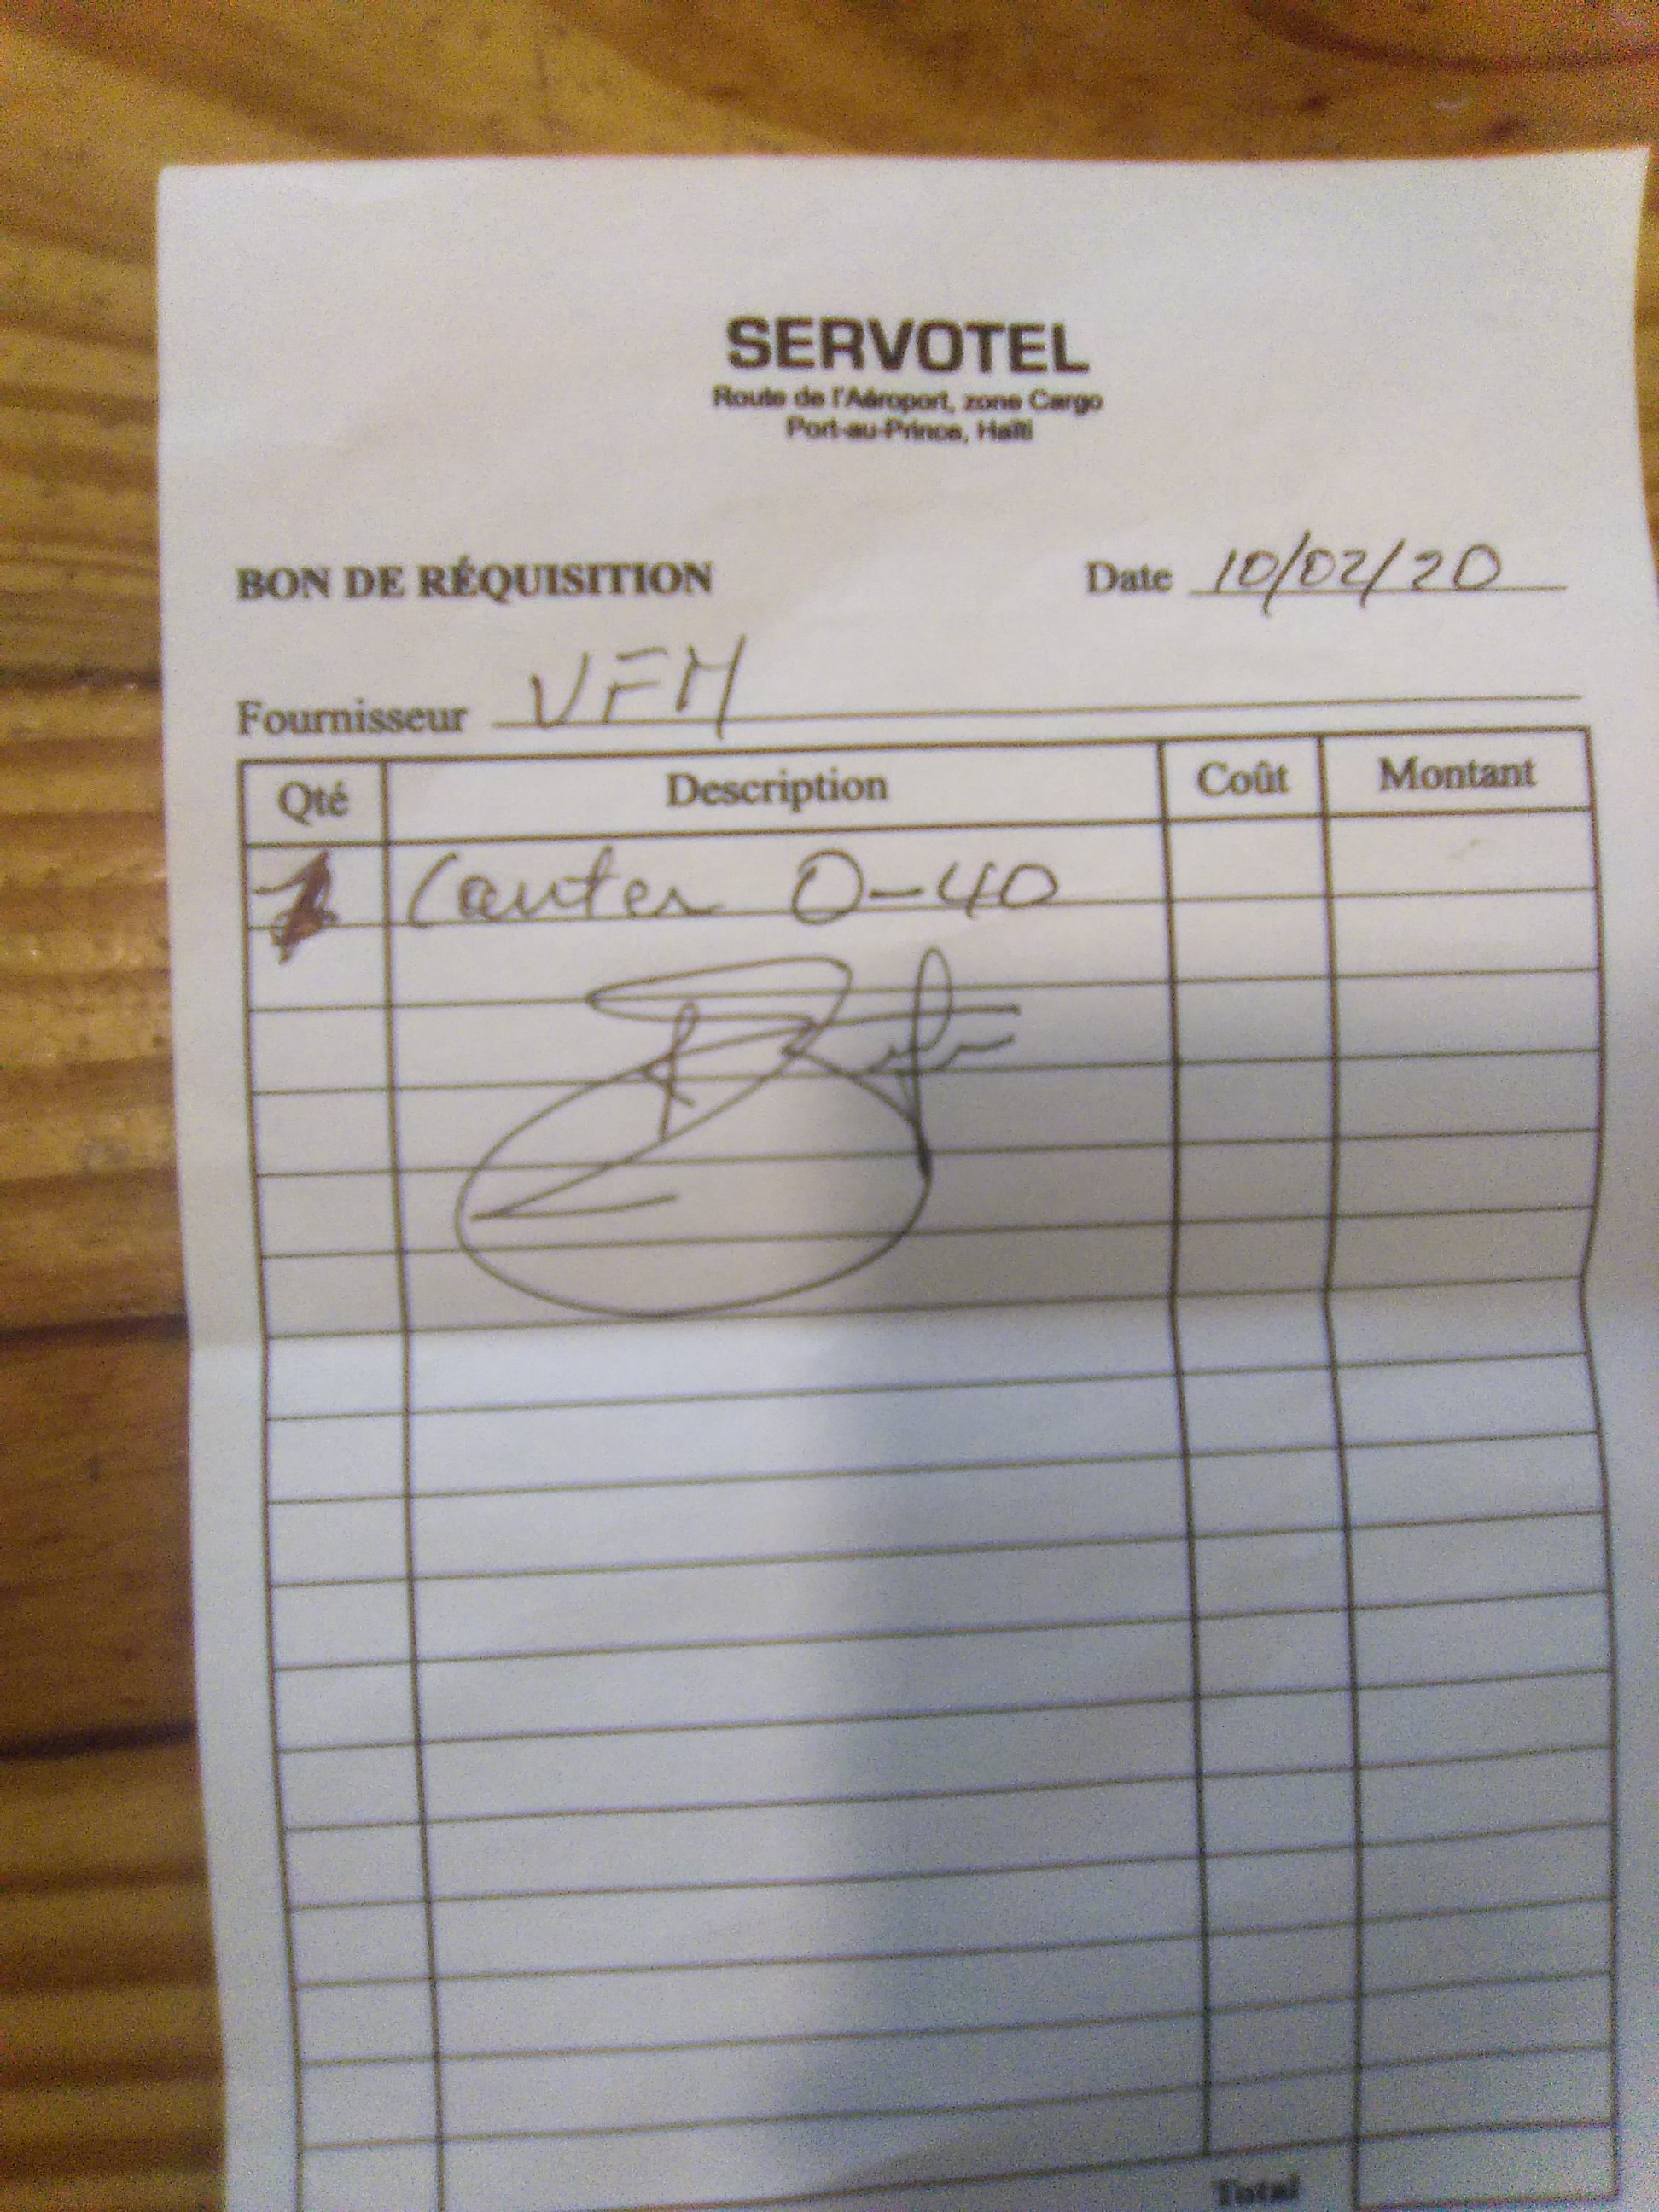 SERVOTEL
Route de l'Aéroport, zone Cargo
Port-au-Prince, Haïti
BON DE RÉQUISITION Date 10/02/20
Fournisseur VFM
Qté Description Coût Montant
Canter 0-40
Total